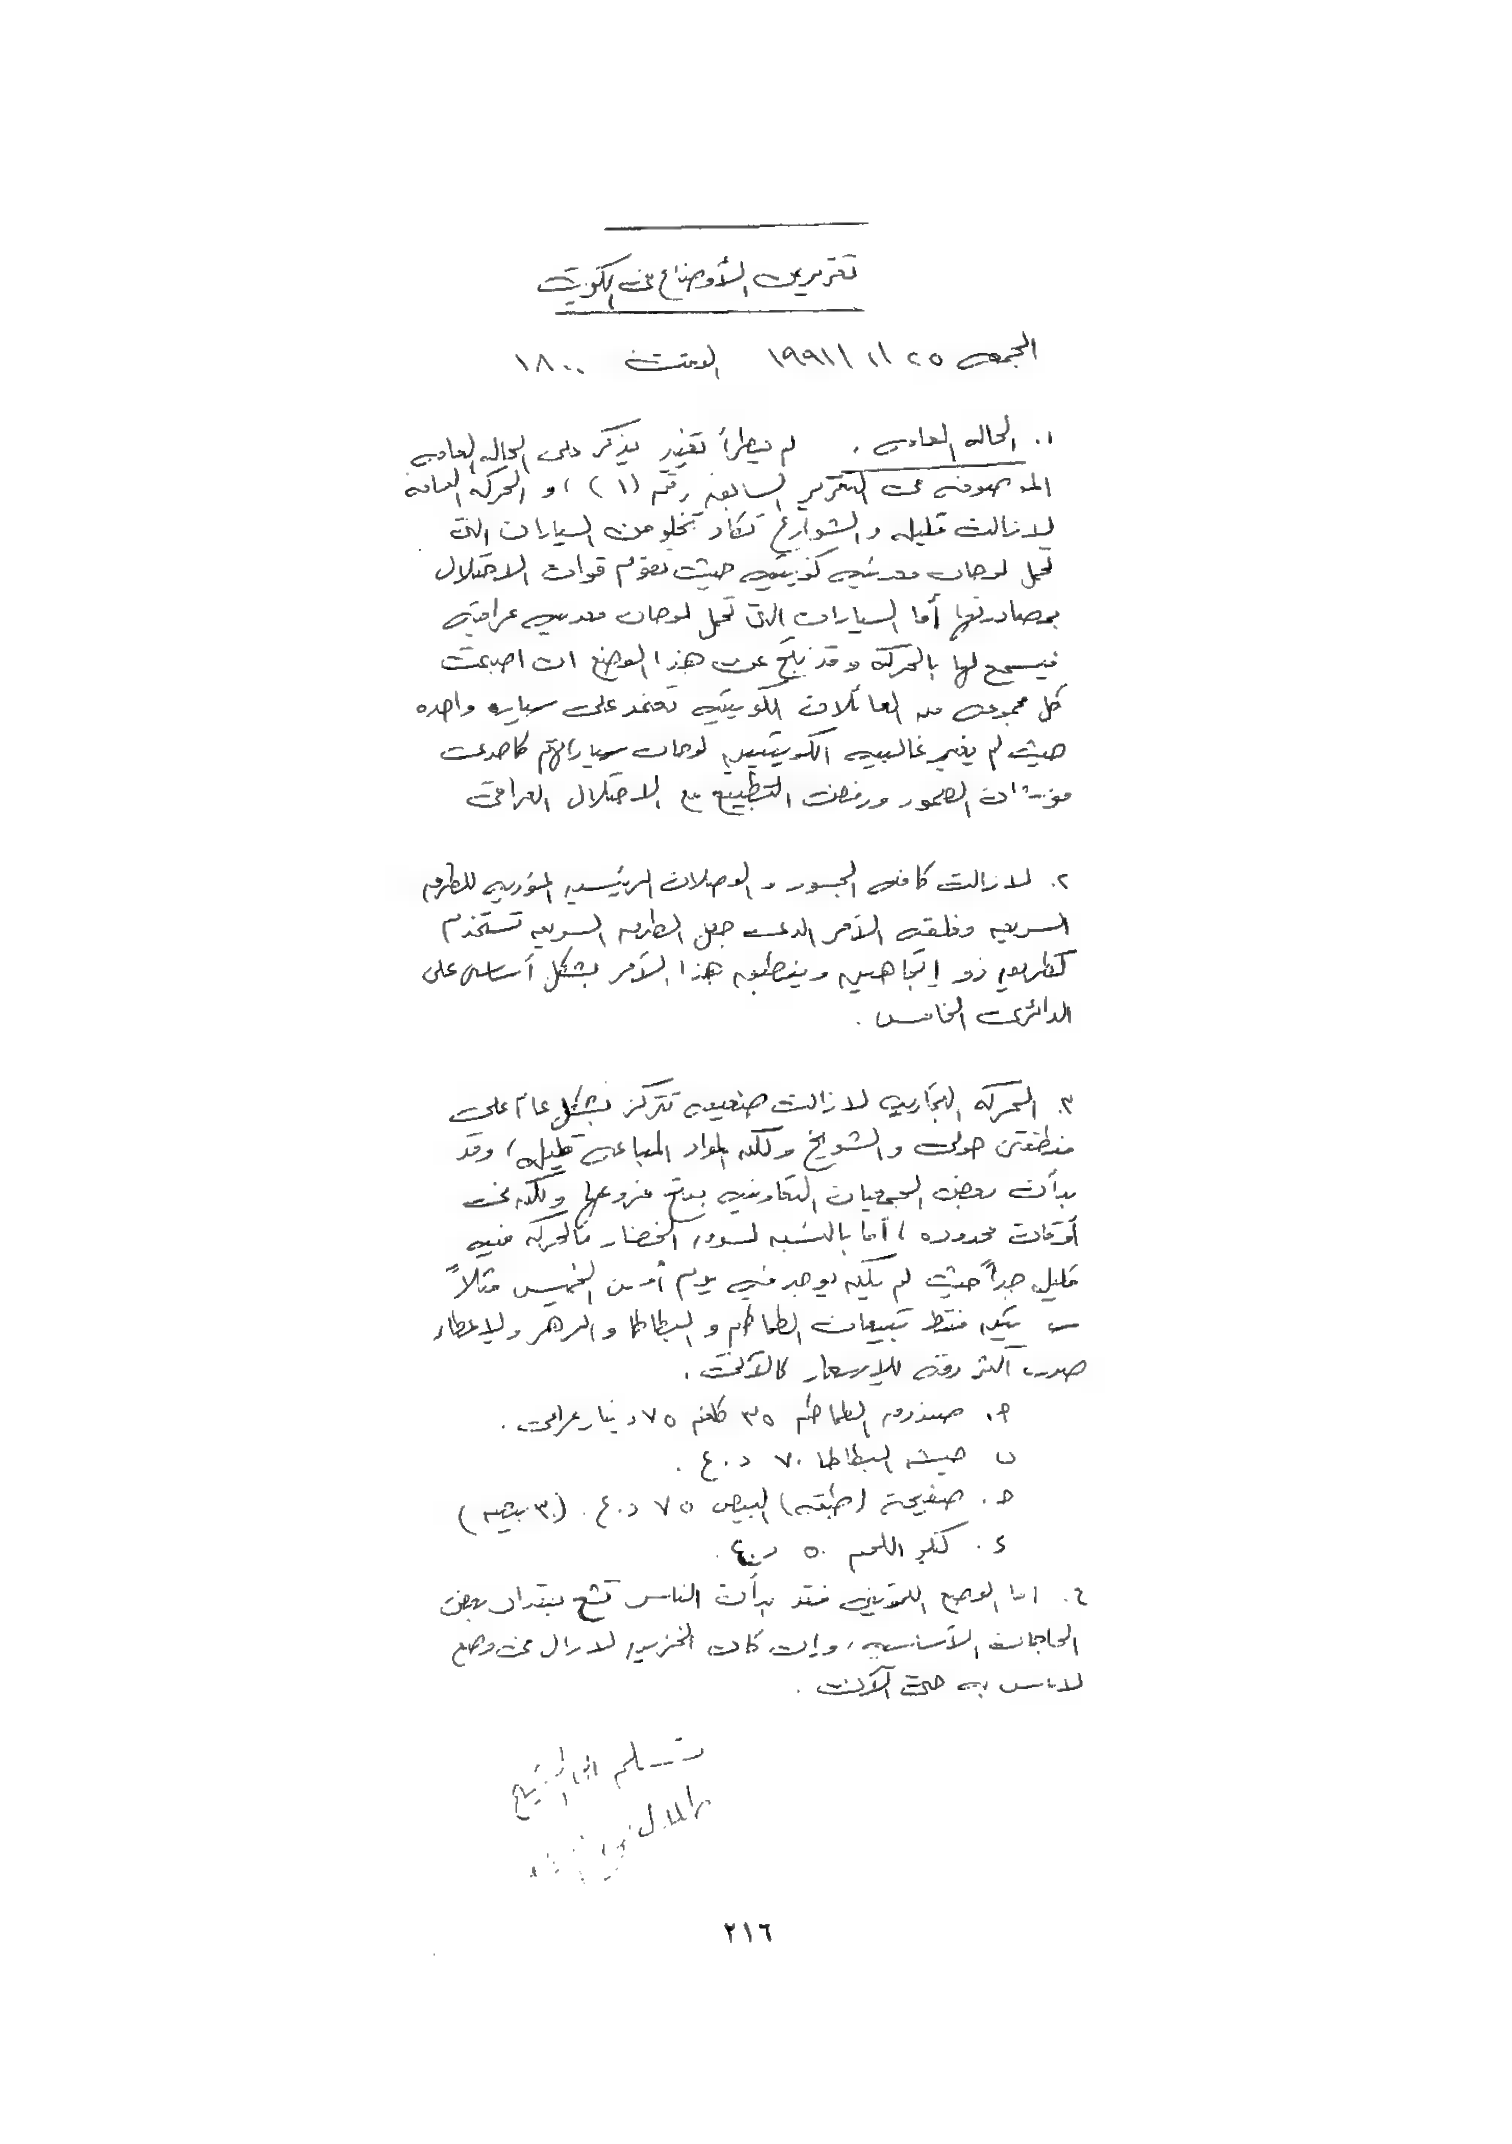 تقرير عن الأوضاع في الكويت
الجمعه ٢٥ /١ /١٩٩١ الوقت ١٨٠٠
١. الحاله العامه . لم يطرأ تغيير يذكر على الحاله العامه
الموصوفه في التقرير السابق رقم (١) ، و الحركه العامه
لا زالت قليله و الشوارع تكاد تخلو من السيارات التي
تحمل لوحات معدنيه كويتيه حيث تقوم قوات الاحتلال
بمصادرتها أما السيارات التي تحمل لوحات معدنيه عراقية
فيسمح لها بالحركة وقد نتج عن هذا الوضع ان اصبحت
كل مجموعه من العائلات الكويتيه تعتمد على سياره واحده
حيث لم يغير غالبيه الكويتيين لوحات سياراتهم كاحدى
الصمود ورفض التطبيع مع الاحتلال العراقي
٢. لا زالت كافه الجسور و الوصلات الرئيسيه المؤديه للطرق
السريعه مغلقه الأمر الذي جعل الطرق السريعه تستخدم
كطريق ذو إتجاهين وينطبق هذا الأمر بشكل أساسي على
الدائري الخامس .
٣. الحركه التجاريه لا زالت ضعيفه تتركز بشكل عام على
منطقتي حولي و الشويخ ولكن المواد المباعه قليله ، وقد
بدأت بعض الجمعيات التعاونيه بفتح فروعها ولكن في
أوقات محدوده ، أما بالنسبه لسوق الخضار فالحركه فيه
قليله جداً حيث لم يكن يوجد فيه يوم أمس الخميس مثلاً
فقط تبيعان الطماطم و البطاطا و ولإعطاء
صوره أكثر دقه للاسعار كالآتي .
٩. صندوق الطماطم ٣٥ كلغم ٧٥ دينار عراقي .
ب خيشه البطاطا ٧٠ د.ع .
ح. صفيحة (طبقه) البيض ٧٥ د.ع. (٣٠ بيضه)
د. كيلو اللحم ٥٠ د.ع .
٤. اما الوضع التمويني فقد بدأت الناس تشح بعض
الحاجات الأساسيه ، وإن كان لا زال في وضع
لا بأس به حتى الآن .
تسلم
٢١٦